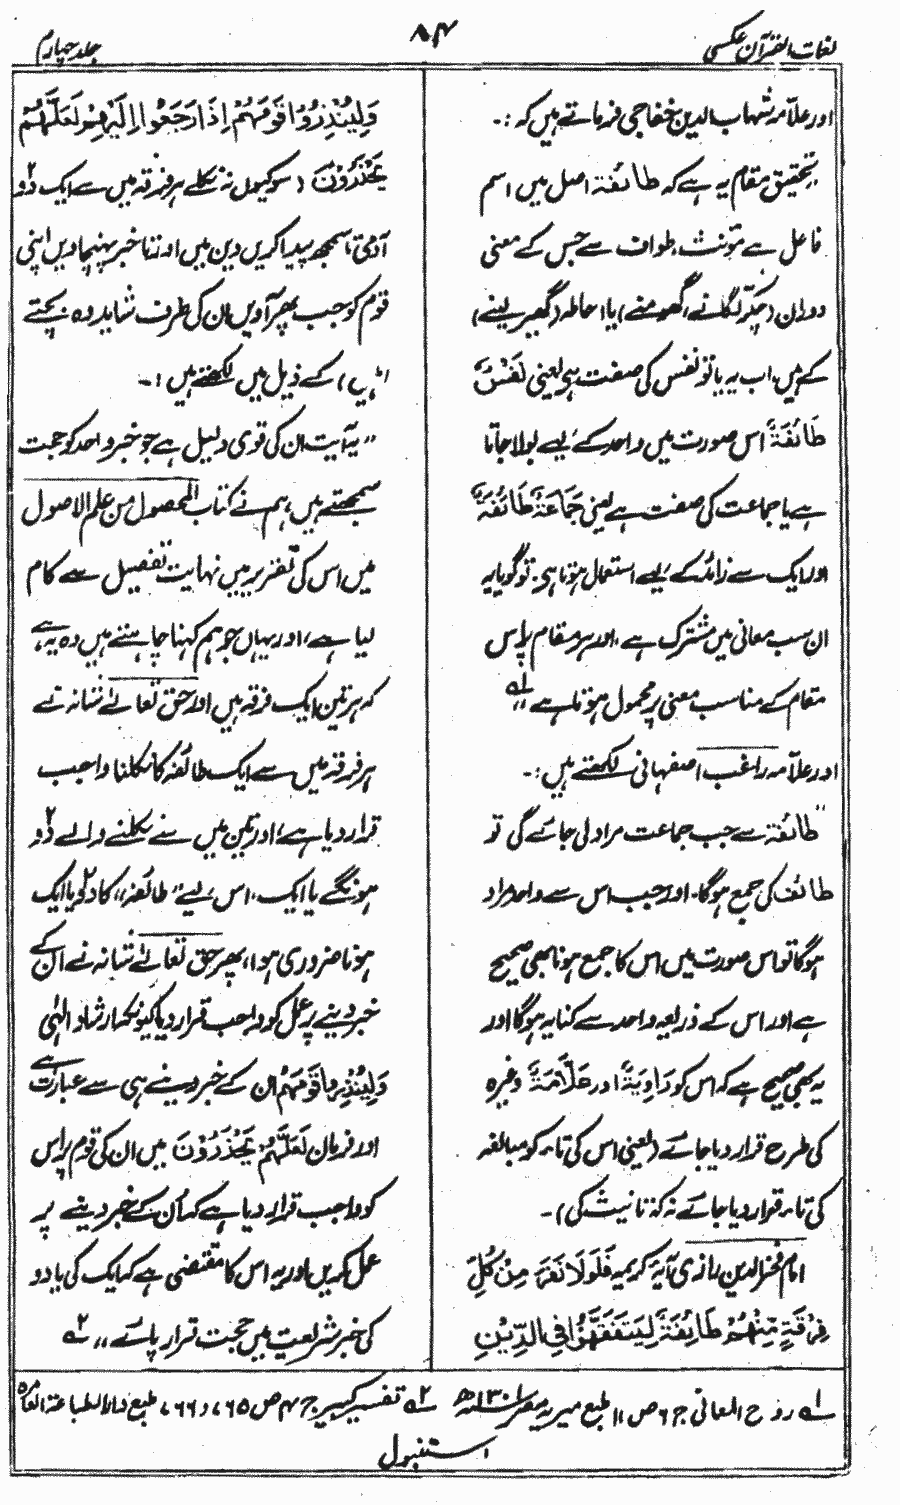 لغات القرآن عکسی
۸۴
جلد چہارم
اور علّامہ شہاب الدین خفاجی فرماتے ہیں کہ :۔
تحقیق مقام یہ ہے کہ طائفۃ اصل میں اسم
فاعل ہے مؤنث، طواف سے جس کے معنی
دوران (چکر لگانے، گھومنے) یا احاطہ (گھیر لینے)
کے ہیں، اب یہ یا تو نفس کی صفت ہی یعنی نَفْسٌ
طَائِفَۃٌ اس صورت میں واحد کے لیے بولا جاتا
ہے یا جماعت کی صفت ہے یعنی جَمَاعَۃٌ طَائِفَۃٌ
اور ایک سے زائد کے لیے استعمال ہوتا ہی، تو گویا یہ
ان سب معانی میں مشترک ہے، اور ہر مقام پر اس
مقام کے مناسب معنی پر محمول ہوتا ہے ،، لہ
اور علّامہ راغب اصفہانی لکھتے ہیں :۔
،،طائفۃ سے جب جماعت مراد لی جائے گی تو
طائف کی جمع ہو گا۔ اور جب اس سے واحد مراد
ہو گا تو اس صورت میں اس کا جمع ہونا بھی صحیح
ہے اور اس کے ذریعہ واحد سے کنایہ ہو گا اور
یہ بھی صحیح ہے کہ اس کو رَاوِیَۃٌ اور عَلَّامَۃٌ وغیرہ
کی طرح قرار دیا جائے (یعنی اس کی تاء کو مبالغہ
کی تاء قرار دیا جائے نہ کہ تانیث کی)۔
امام فخر الدین رازی آیۂ کریمہ فَلَوْلَا نَفَرَ مِنْ کُلِّ
فِرْقَۃٍ مِّنْھُمْ طَائِفَۃٌ لِّیَتَفَقَّھُوْا فِی الدِّیْنِ
وَلِیُنْذِرُوْا قَوْمَھُمْ اِذَا رَجَعُوْا اِلَیْھِمْ لَعَلَّھُمْ
یَحْذَرُوْنَ (سو کیوں نہ نکلے ہر فرقہ میں سے ایک دو
آدمی تا سمجھ پیدا کریں دین میں اور تا خبر پہنچا دیں اپنی
قوم کو جب پھر آویں ان کی طرف شاید وہ بچتے
رہیں) کے ذیل میں لکھتے ہیں :۔
،،یہ آیت ان کی قوی دلیل ہے جو خبر واحد کو حجت
سمجھتے ہیں، ہم نے کتاب المحصول من علم الاصول
میں اس کی تقریر میں نہایت تفصیل سے کام
لیا ہے، اور یہاں جو ہم کہنا چاہتے ہیں وہ یہ ہے
کہ ہر تین ایک فرقہ میں اور حق تعالےٰ شانہ نے
ہر فرقہ میں سے ایک طائفہ کا نکلنا واجب
قرار دیا ہے، اور تین میں سے نکلنے والے دو
ہونگے یا ایک، اس لیے ،،طائفہ،، کا دو یا ایک
ہونا ضروری ہوا، پھر حق تعالےٰ شانہ نے ان کے
خبر دینے پر عمل کو واجب قرار دیا کیونکہ ارشاد الٰہی
وَلِیُنْذِرُوا قَوْمَھُمْ ان کے خبر دینے ہی سے عبارت ہے
اور فرمان لَعَلَّھُمْ یَحْذَرُوْنَ میں ان کی قوم پر اس
کو واجب قرار دیا ہے کہ ان کے خبر دینے پر
عمل کریں اور یہ اس کا مقتضی ہے کہ ایک کی یا دو
کی خبر شریعت میں حجت قرار پائے ،، ۲ہ
لہ روح المعانی ج ۶ ص ۱۱ طبع میریہ مصر ۱۳۰۱ھ ۲ہ تفسیر کبیر ج ۴ ص ۷۶۵، ۷۶۶، طبع دار الطباعۃ العامرہ
استنبول